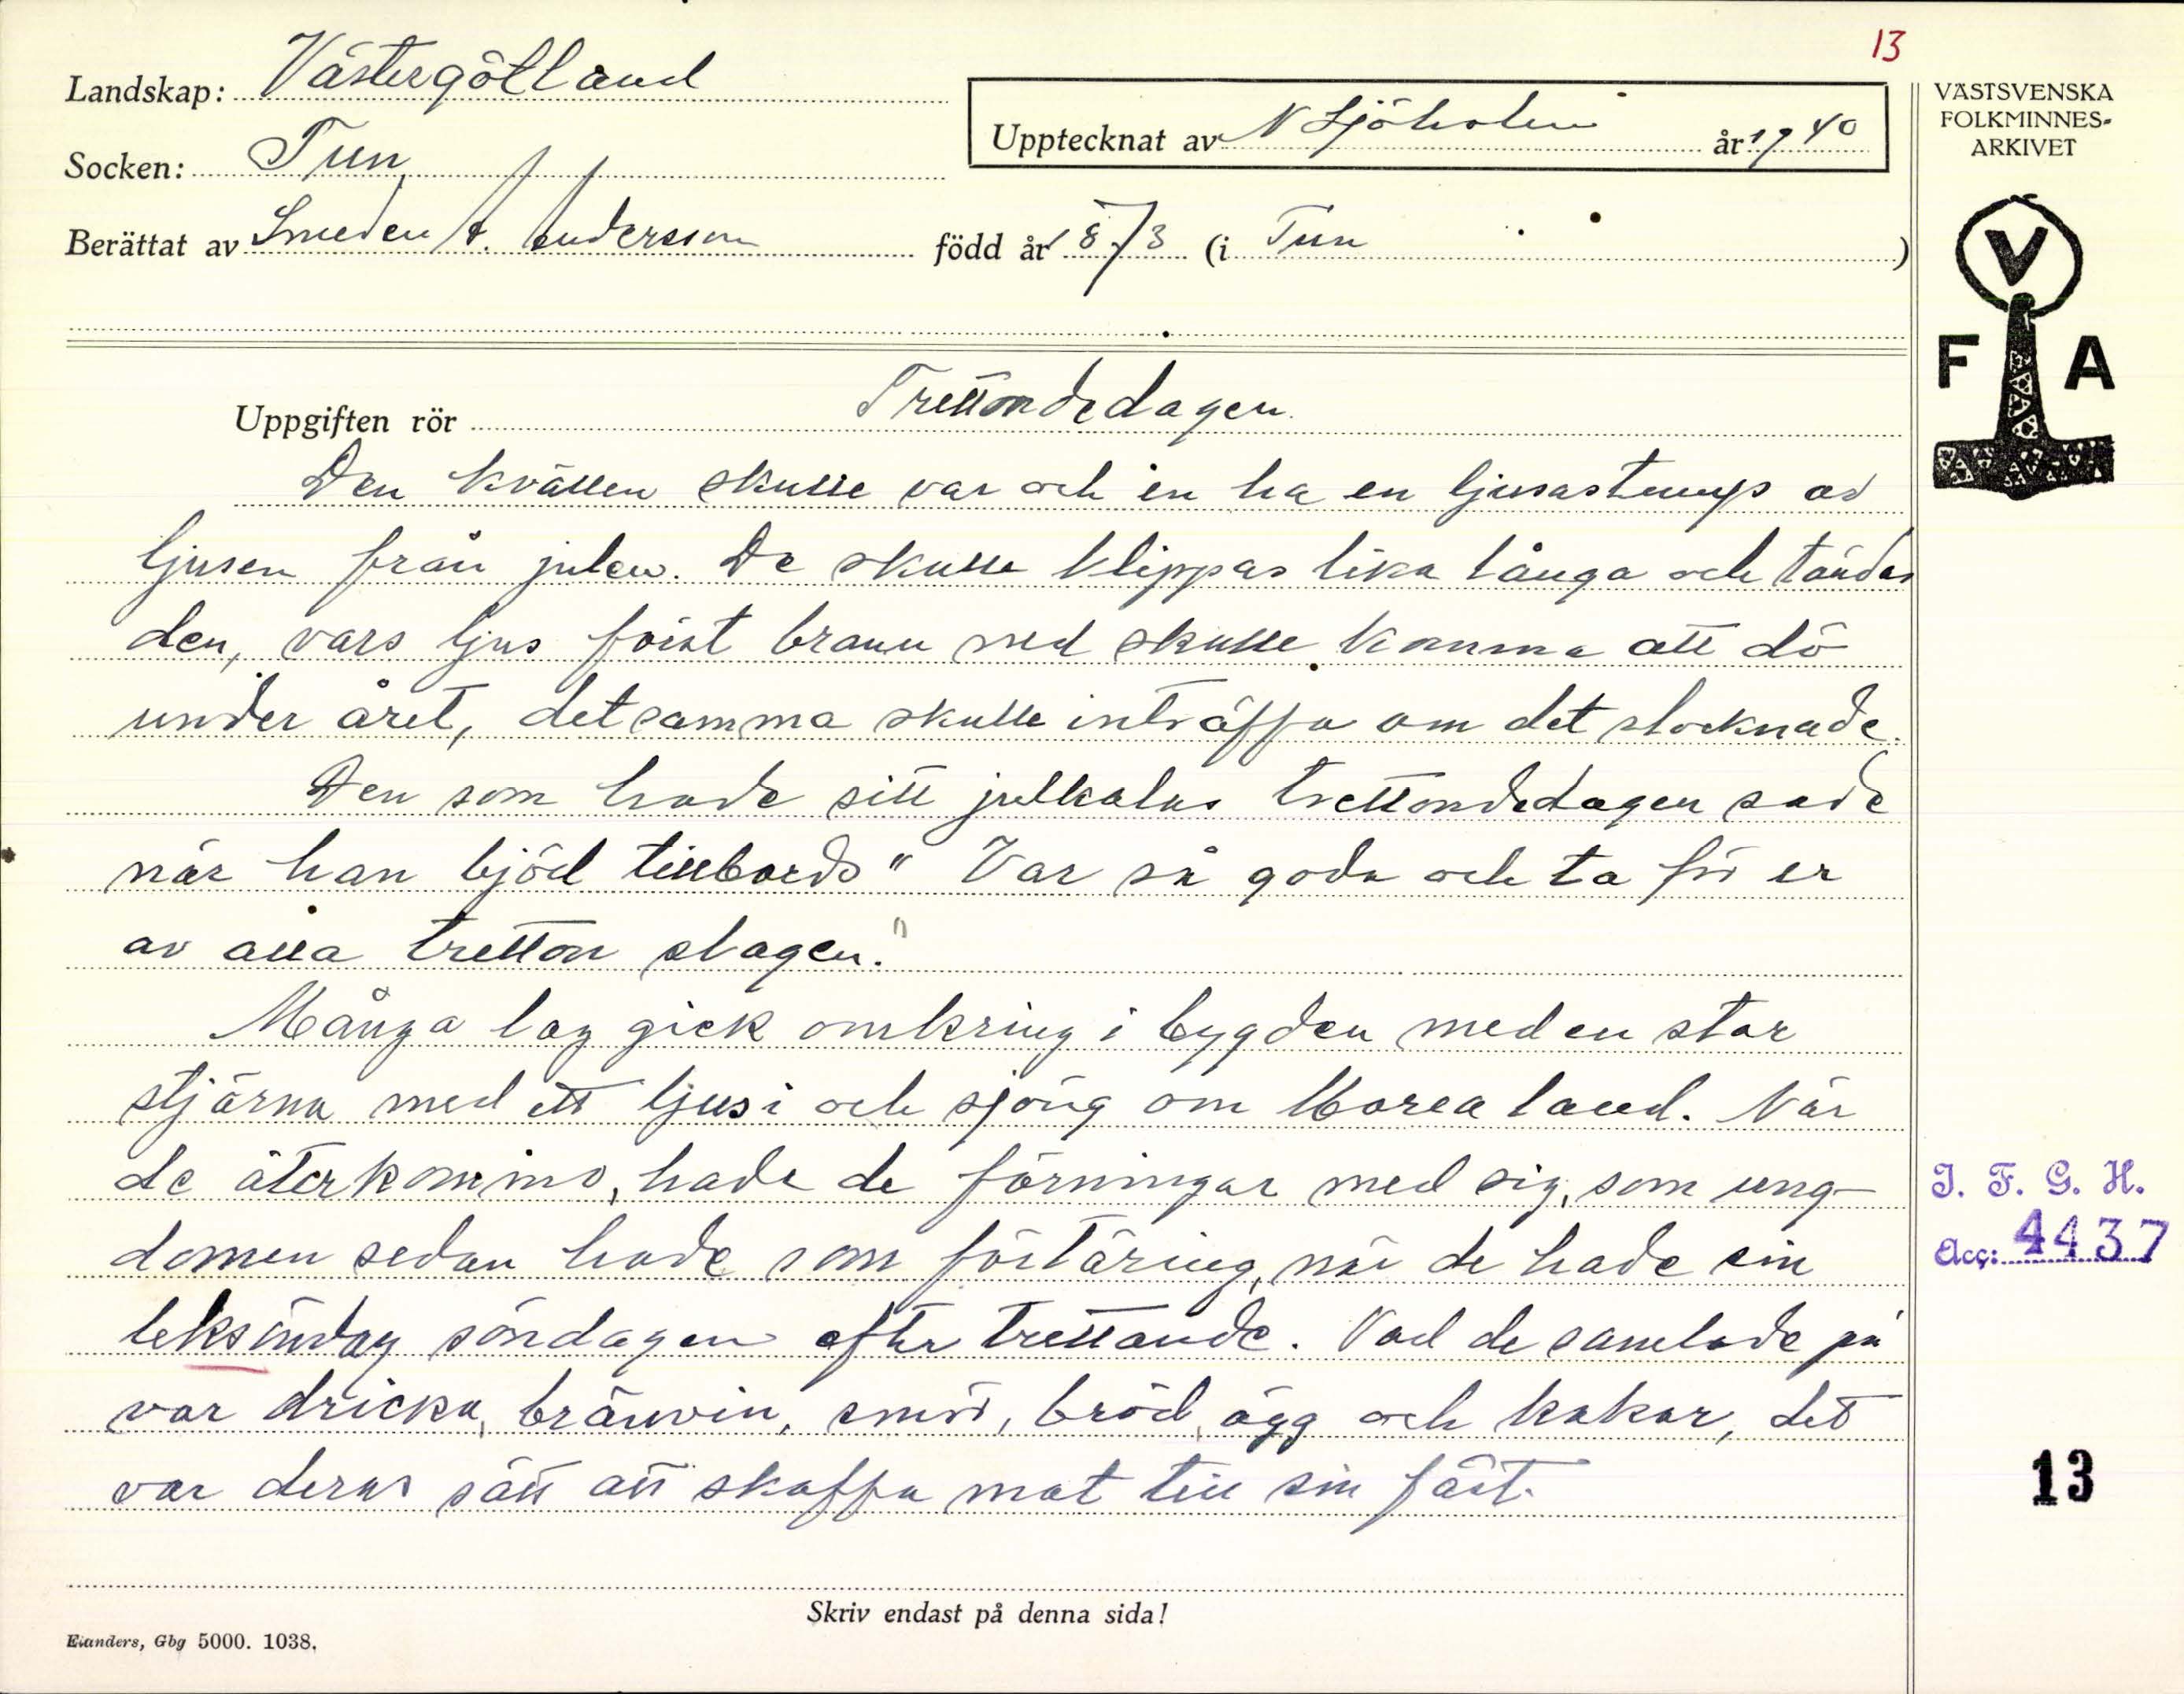 13
Landskap: Västergötland
Upptecknat av N Sjöholm år 1940
VÄSTSVENSKA
FOLKMINNES-
ARKIVET
Socken: Tun
Berättat av Smeden A. Andersson född år 1873 (i Tun )
V
F A
Uppgiften rör Trettondedagen.
Den kvällen skulle var och en ha en ljusastump av
ljusen från julen. De skulle klippas lika långa och tändas
den, vars ljus först brann ned skulle komma att dö
under året, detsamma skulle inträffa om det slocknade.
Den som hade sitt julkalas trettondedagen sade
när han bjöd tillbords " Var så goda och ta för er
av alla tretton slagen."
Många lag gick omkring i bygden med en stor
stjärna med ett ljus i och sjöng om Morea land. När
de återkommo, hade de förningar med sig, som ung-
domen sedan hade som förtäring, när de hade sin
leksöndag söndagen efter trettande. Vad de samlade på
var dricka, brännvin, smör, bröd, ägg och kakor, det
var deras sätt att skaffa mat till sin fäst.
J. F. G. H.
Acc: 4437
13
Skriv endast på denna sida!
Elanders, Gbg 5000. 1038.